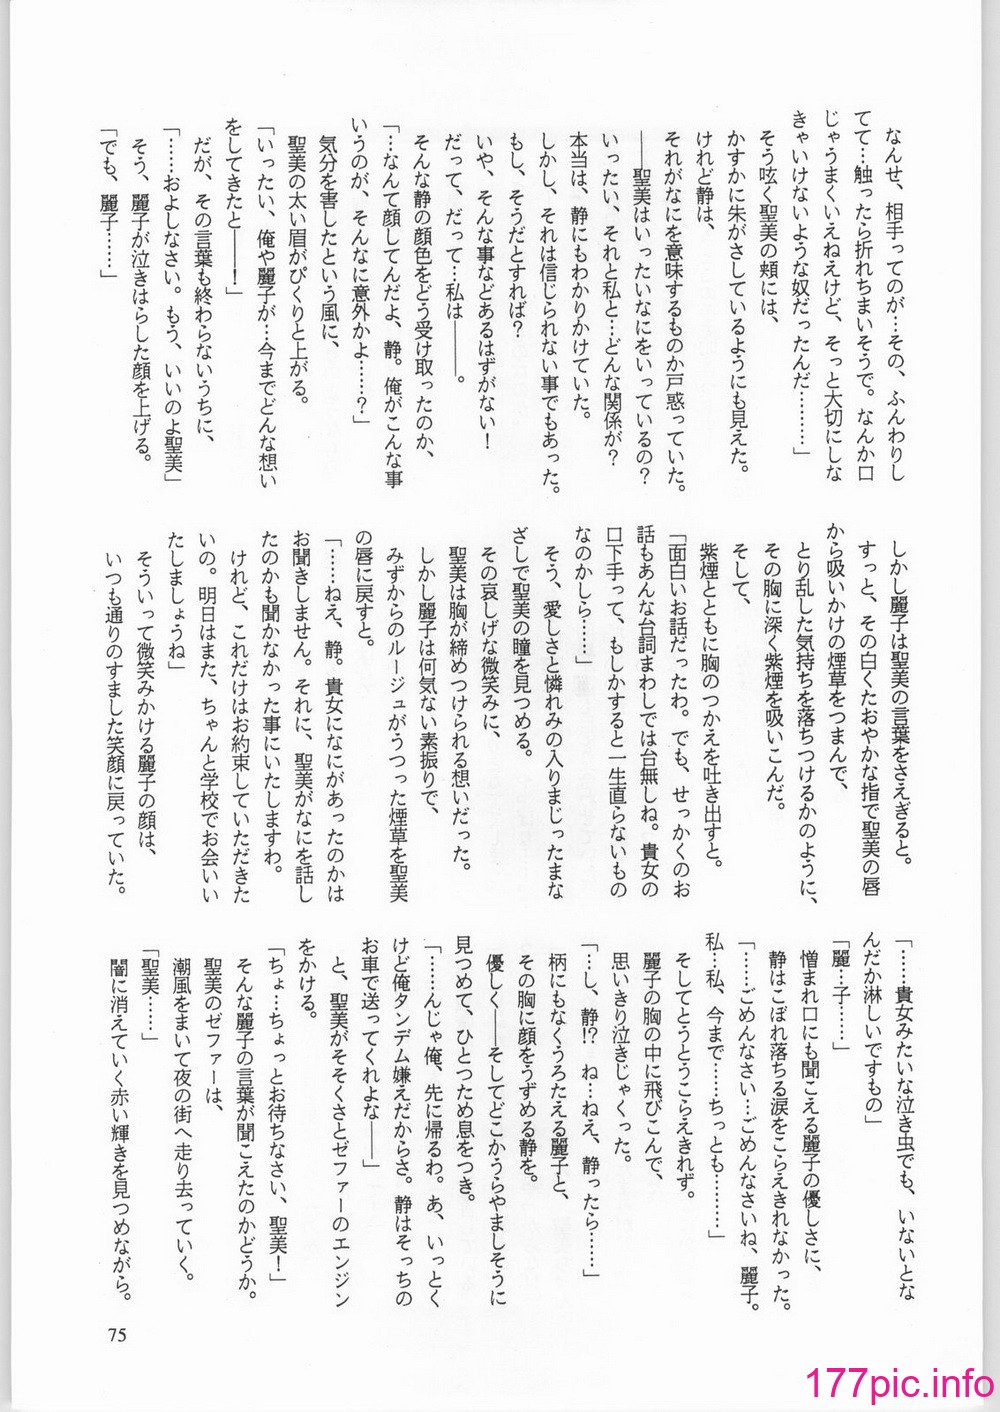 なんせ、相手ってのが…その、ふんわりし
てて…触ったら折れちまいそうで。なんか口
じゃうまくいえねえけど、そっと大切にしな
きゃいけないような奴だったんだ………」
そう呟く聖美の頬には、
かすかに朱がさしているようにも見えた。
けれど静は、
それがなにを意味するものか戸惑っていた。
――聖美はいったいなにをいっているの？
いったい、それと私と…どんな関係が？
本当は、静にもわかりかけていた。
しかし、それは信じられない事でもあった。
もし、そうだとすれば？
いや、そんな事などあるはずがない！
だって、だって…私は――。
そんな静の顔色をどう受け取ったのか、
「…なんて顔してんだよ、静。俺がこんな事
いうのが、そんなに意外かよ……？」
気分を害したという風に、
聖美の太い眉がぴくりと上がる。
「いったい、俺や麗子が…今までどんな想い
をしてきたと――！」
だが、その言葉も終わらないうちに、
「……およしなさい。もう、いいのよ聖美」
そう、麗子が泣きはらした顔を上げる。
「でも、麗子……」
しかし麗子は聖美の言葉をさえぎると。
すっと、その白くたおやかな指で聖美の唇
から吸いかけの煙草をつまんで、
とり乱した気持ちを落ちつけるかのように、
その胸に深く紫煙を吸いこんだ。
そして、
紫煙とともに胸のつかえを吐き出すと。
「面白いお話だったわ。でも、せっかくのお
話もあんな台詞まわしでは台無しね。貴女の
口下手って、もしかすると一生直らないもの
なのかしら……」
そう、愛しさと憐れみの入りまじったまな
ざしで聖美の瞳を見つめる。
その哀しげな微笑みに、
聖美は胸が締めつけられる想いだった。
しかし麗子は何気ない素振りで、
みずからのルージュがうつった煙草を聖美
の唇に戻すと。
「……ねえ、静。貴女になにがあったのかは
お聞きしません。それに、聖美がなにを話し
たのかも聞かなかった事にいたしますわ。
けれど、これだけはお約束していただきた
いの。明日はまた、ちゃんと学校でお会いい
たしましょうね」
そういって微笑みかける麗子の顔は、
いつも通りのすました笑顔に戻っていた。
「……貴女みたいな泣き虫でも、いないとな
んだか淋しいですもの」
「麗…子……」
憎まれ口にも聞こえる麗子の優しさに、
静はこぼれ落ちる涙をこらえきれなかった。
「……ごめんなさい…ごめんなさいね、麗子。
私…私、今まで……ちっとも………」
そしてとうとうこらえきれず。
麗子の胸の中に飛びこんで、
思いきり泣きじゃくった。
「…し、静!?　ね…ねえ、静ったら……」
柄にもなくうろたえる麗子と、
その胸に顔をうずめる静を。
優しく――そしてどこかうらやましそうに
見つめて、ひとつため息をつき。
「……んじゃ俺、先に帰るわ。あ、いっとく
けど俺タンデム嫌えだからさ。静はそっちの
お車で送ってくれよな――」
と、聖美がそそくさとゼファーのエンジン
をかける。
「ちょ…ちょっとお待ちなさい、聖美！」
そんな麗子の言葉が聞こえたのかどうか。
聖美のゼファーは、
潮風をまいて夜の街へ走り去っていく。
「聖美……」
闇に消えていく赤い輝きを見つめながら。
75
177pic.info